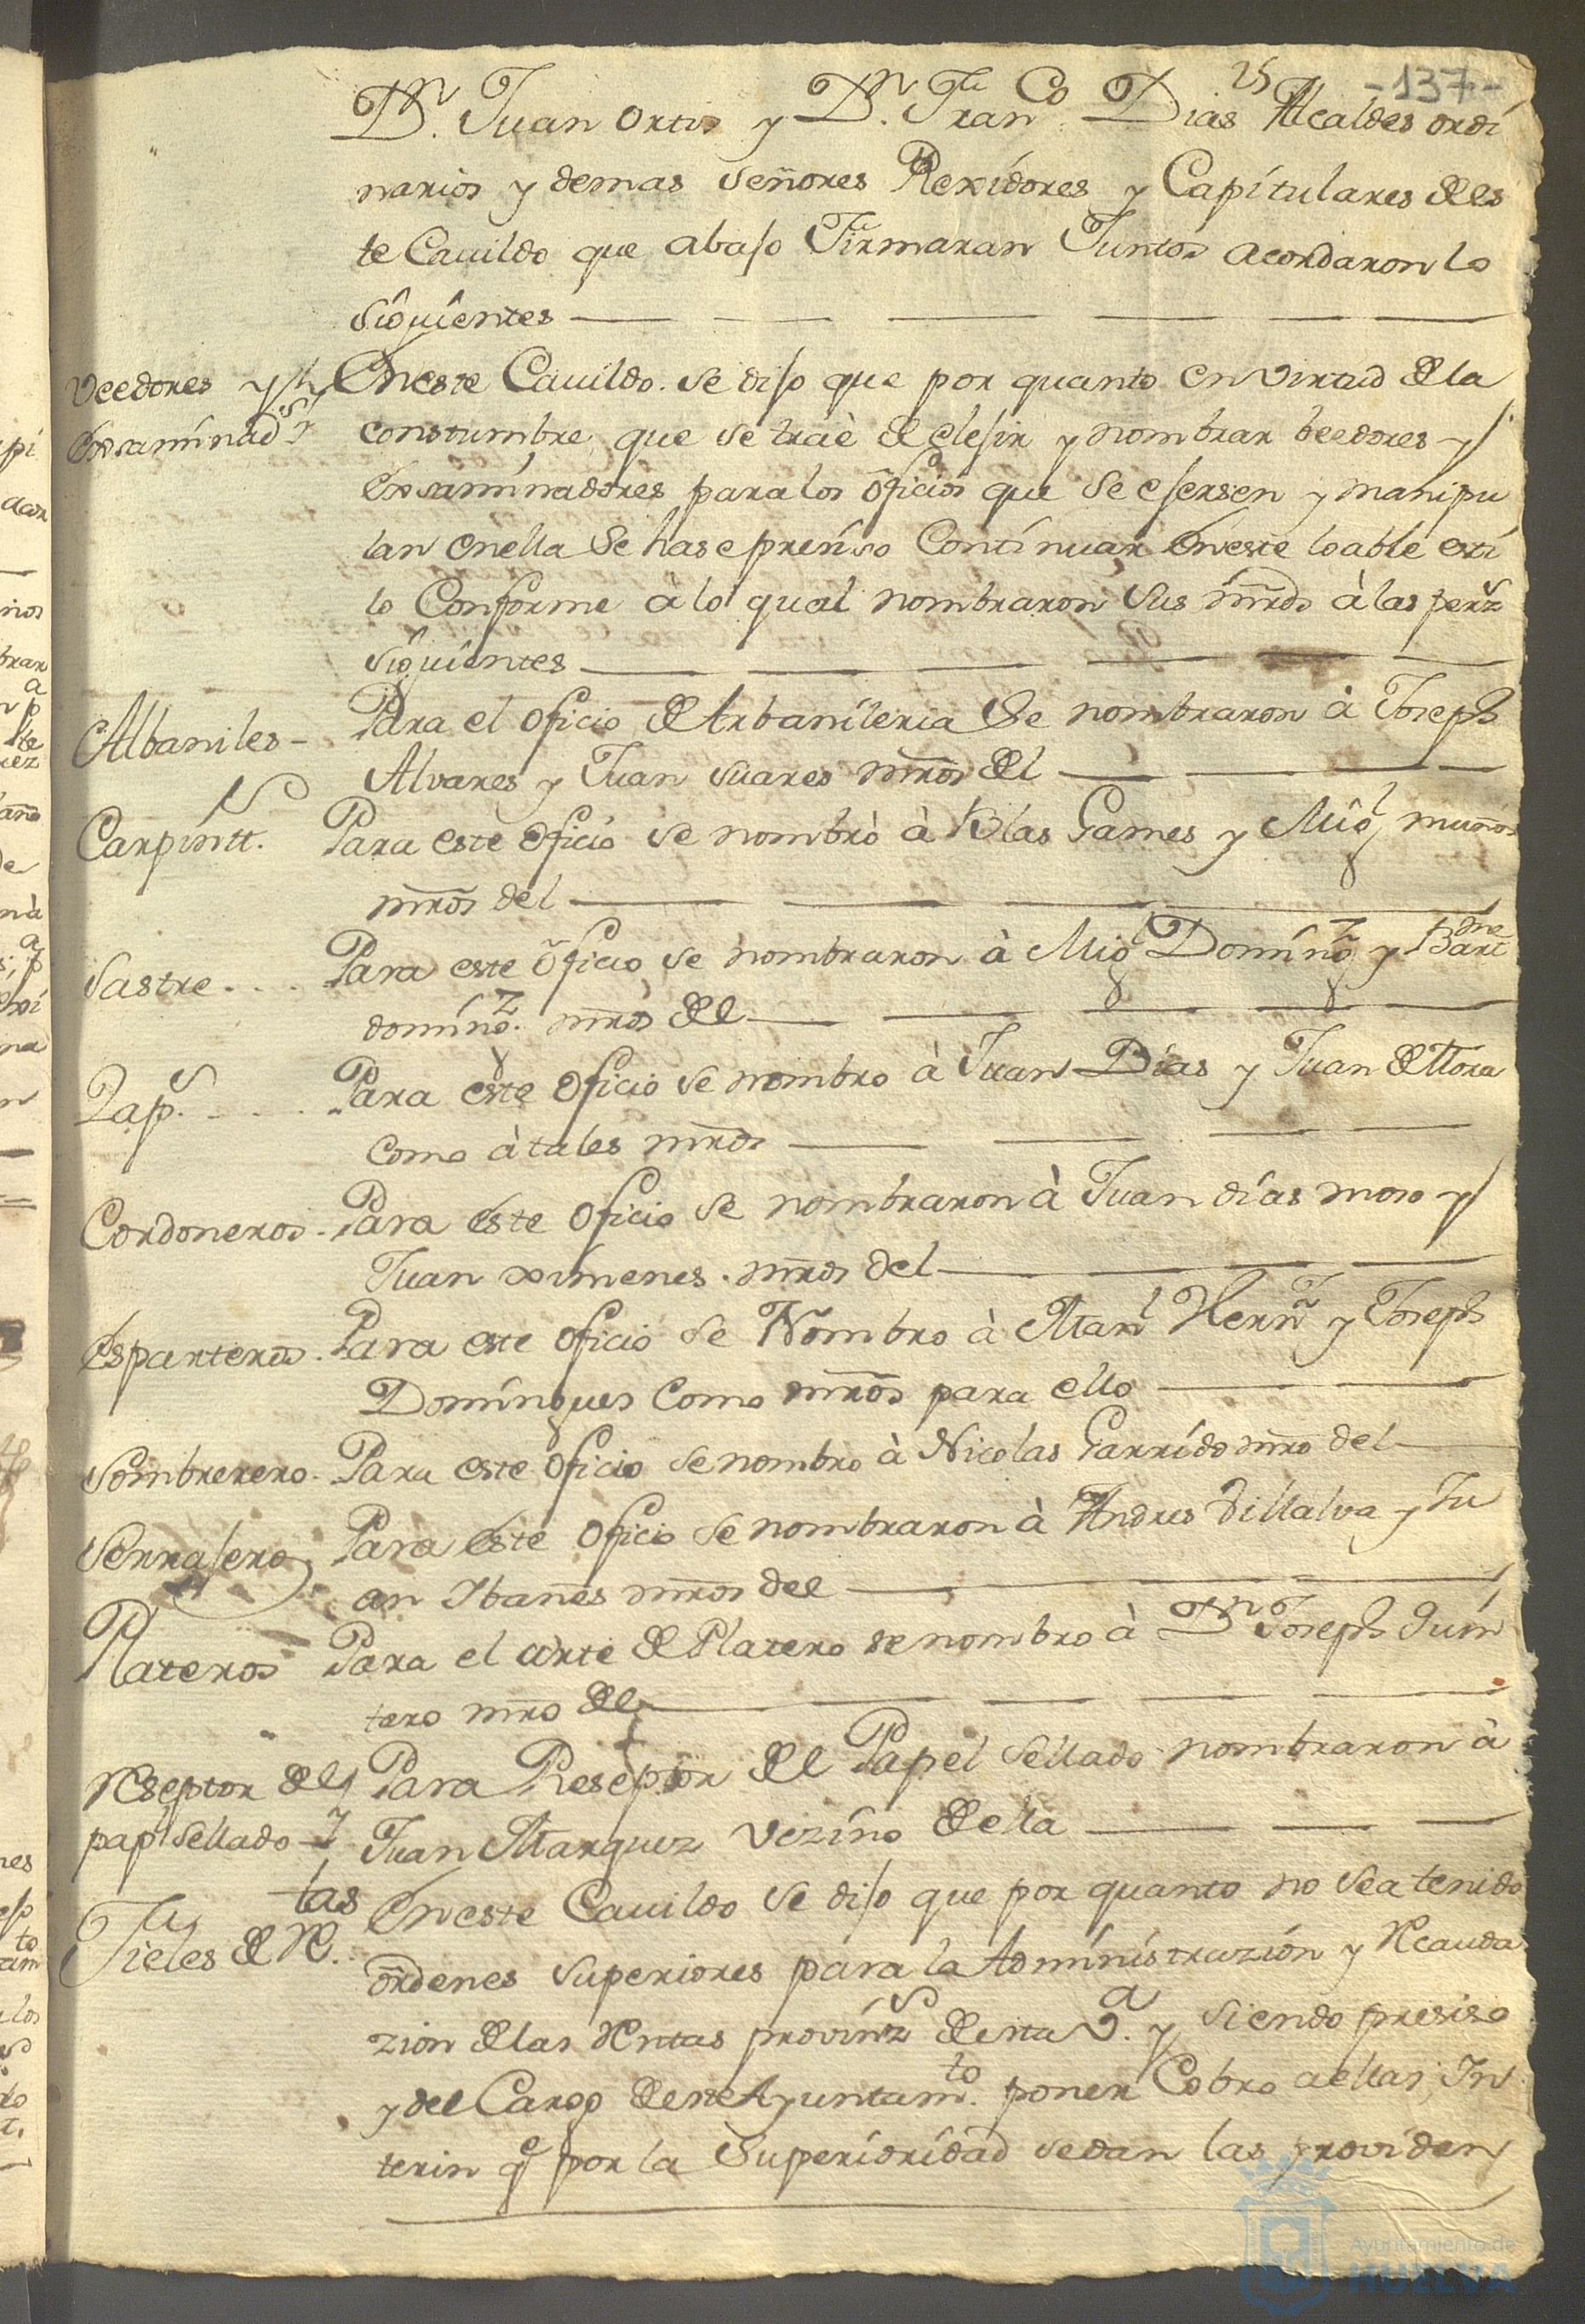 -137-
25
Dn. Juan Ortis y Dn. Franco. Dias Alcaldes ordi
narios y demas Señores Rexidores y Capitulares des
te Cauildo que abajo Firmaran Juntos acordaron lo
Siguientes
Veedores y
Exsaminads.
En este Cauildo. se dijo que por quanto en virtud de la
constumbre que se traè de elejir y nombrar beedores y
exsaminadores para los oficios que se ejersen y manipu
lan en ella se hase presiso Continuar en este loable esti
lo Conforme à lo qual nombraron sus mrds à las pers
Siguientes
Albaniles -
Para el oficio de Arbanileria se nombraron à Joseph
Alvares y Juan Suares mros del
Carpintt.
Para este oficio se nombrò à Blas Games y Migl muños
mros del
Sastre . . .
Para este oficio se nombraron à Migl Domingz y Bartme
domingz. mros del
Zaps. . . .
Para este oficio se nombro à Juan Dias y Juan de Mora
Como à tales mros
Cordoneros.
Para este oficio se nombraron à Juan dias moso y
Juan ximenes. mros del
Esparteros.
Para este oficio se Nombro à Manl Hernz y Joseph
Domingues Como mros para ello
Sombrerero.
Para este oficio se nombro à Nicolas Garrido mro del
Serrajero
Para este oficio se nombraron à Andres Villalva y Ju
an Ibañes mros del
Plateros
Para el arte de Platero se nombro à Dn Joseph Quin
tero mro del
Reseptor del
papl Sellado
Para Reseptor del Papel Sellado nombraron à
Juan Marquez vezino de ella
Fieles de Rtas.
En este Cauildo se dijo que por quanto no se a tenido
ordenes superiores para la Administrazion y Recauda
zion de las Rentas provinzs de esta Va. y siendo presiso
y del Cargo de este Ayuntamto. poner Cobro a ellas, In
terin qe por la Superioridad se dan las providen
Ayuntamiento de
HUELVA